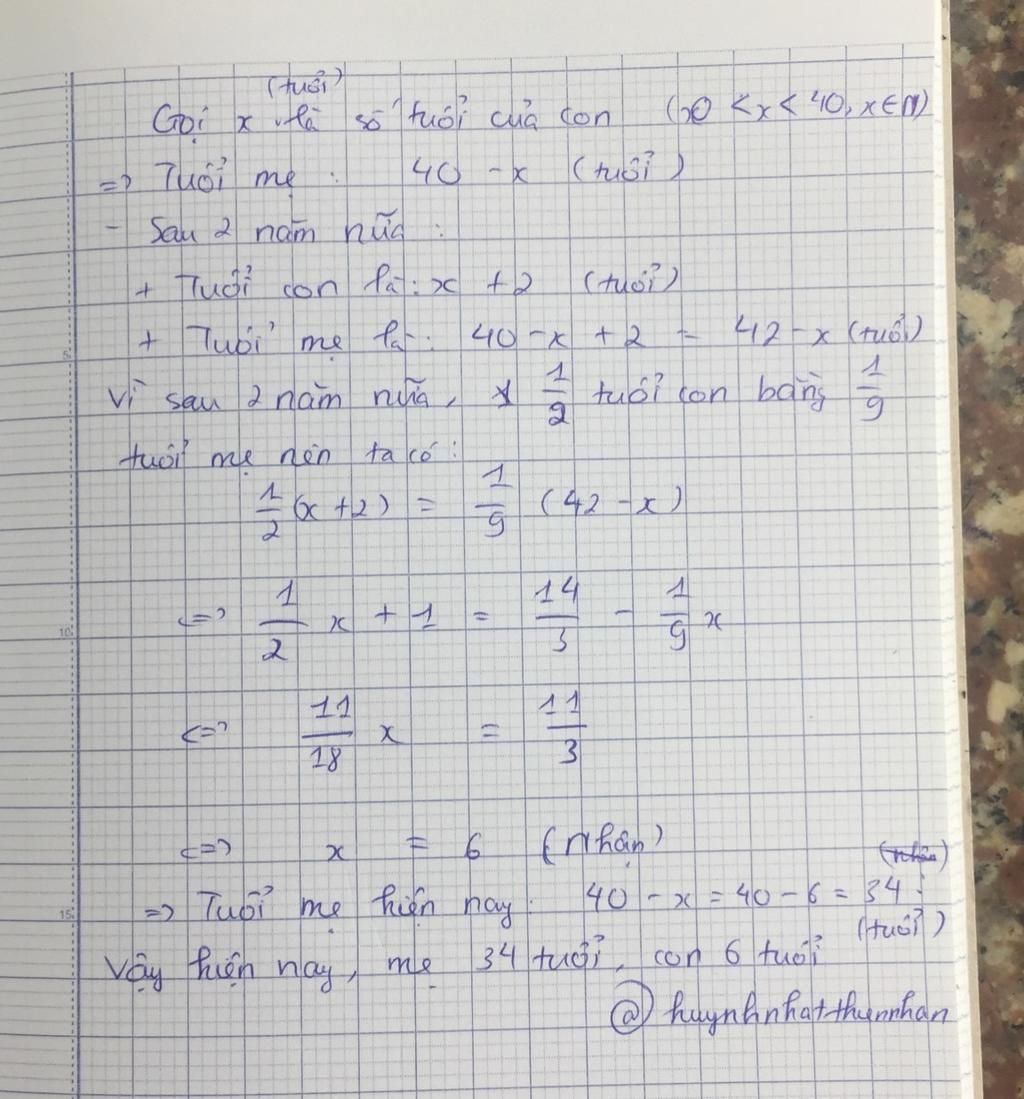 (tuổi)
Gọi x là số tuổi của con (0 < x < 40, x ∈ N)
=> Tuổi mẹ : 40 - x (tuổi)
- Sau 2 năm nữa :
+ Tuổi con là : x + 2 (tuổi)
+ Tuổi mẹ là : 40 - x + 2 = 42 - x (tuổi)
Vì sau 2 năm nữa, 1/2 tuổi con bằng 1/9
tuổi mẹ nên ta có :
1/2 (x + 2) = 1/9 (42 - x)
<=> 1/2 x + 1 = 14/3 - 1/9 x
<=> 11/18 x = 11/3
<=> x = 6 (Nhận)
=> Tuổi mẹ hiện nay : 40 - x = 40 - 6 = 34
(tuổi)
Vậy hiện nay, mẹ 34 tuổi, con 6 tuổi
@huynhnhatthiennhan